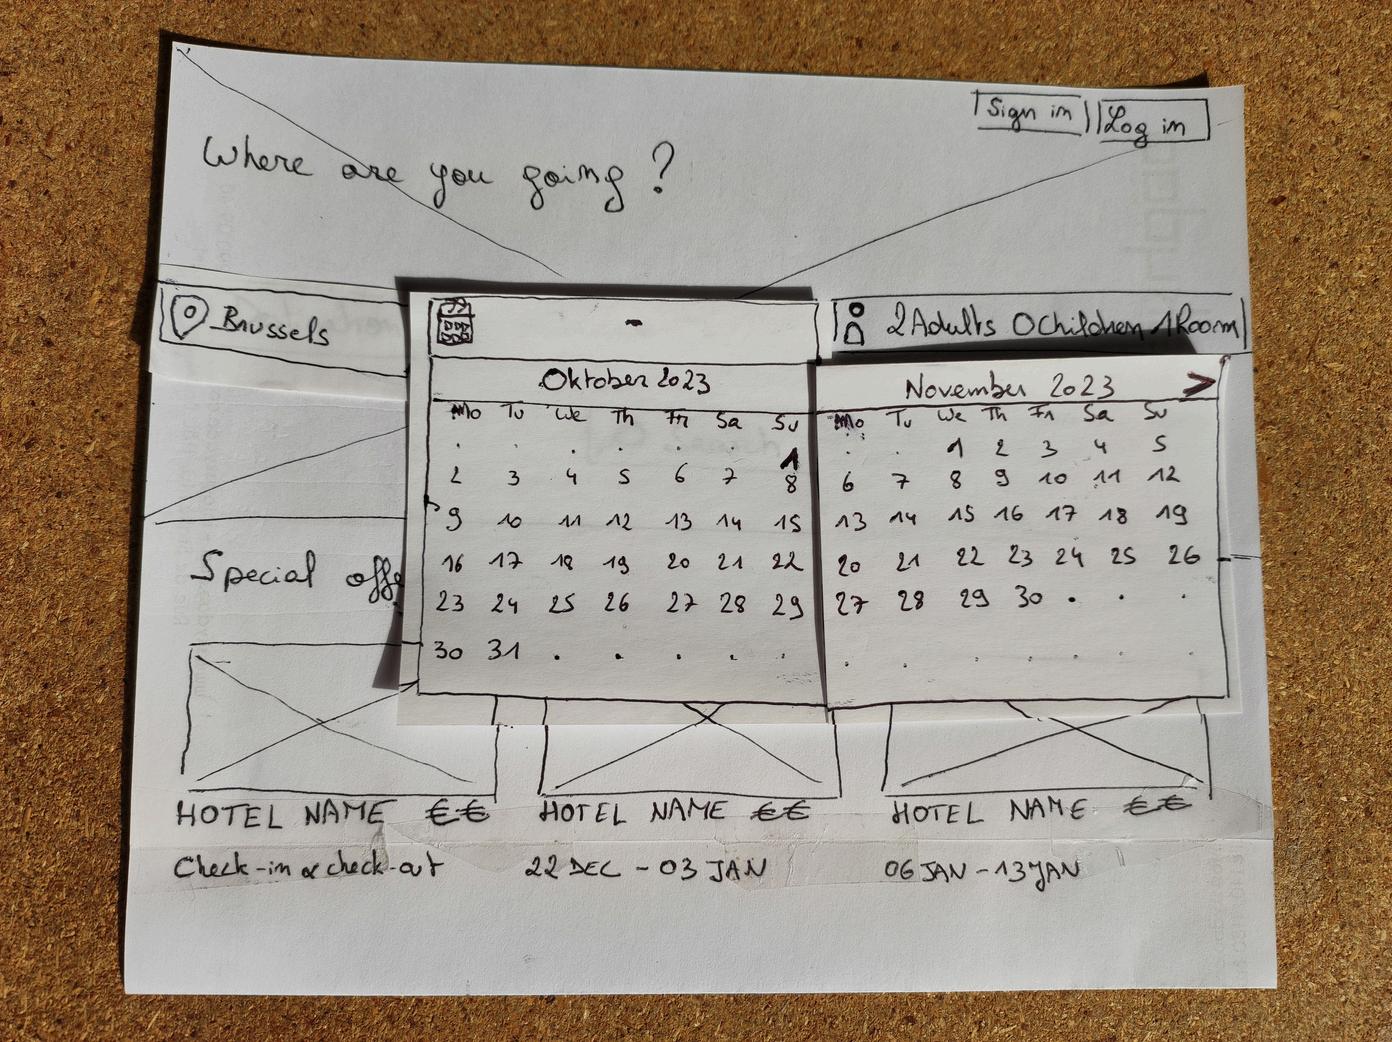 Sign in Log in
Where are you going ?
Brussels - 2 Adults 0 Children 1 Room
Oktober 2023
Mo Tu We Th Fr Sa Su
. . . . . . 1
2 3 4 5 6 7 8
9 10 11 12 13 14 15
16 17 18 19 20 21 22
23 24 25 26 27 28 29
30 31 . . . . .
November 2023 >
Mo Tu We Th Fr Sa Su
. . 1 2 3 4 5
6 7 8 9 10 11 12
13 14 15 16 17 18 19
20 21 22 23 24 25 26
27 28 29 30 . . .
. . . . . . .
Special offe
HOTEL NAME €€ HOTEL NAME €€ HOTEL NAME €€
Check-in & check-out 22 DEC - 03 JAN 06 JAN - 13 JAN